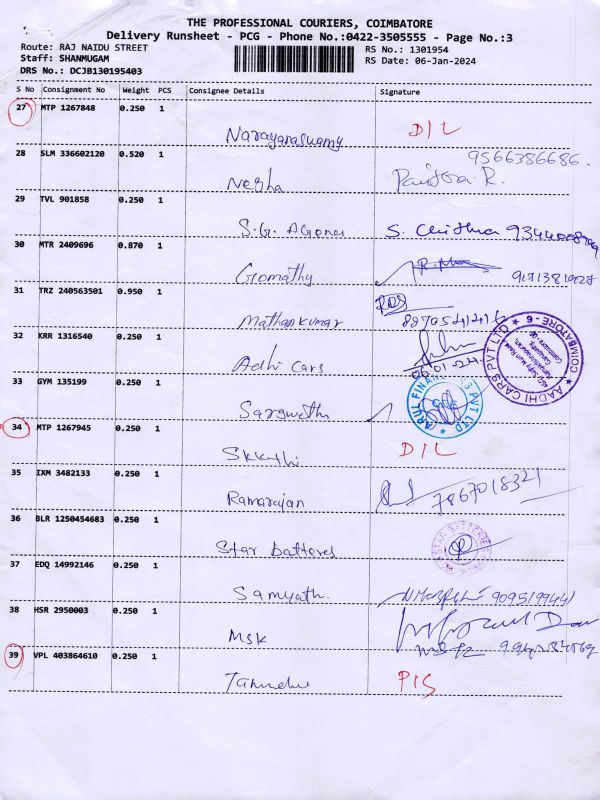 THE PROFESSIONAL COURIERS, COIMBATORE
Delivery Runsheet - PCG - Phone No.:0422-3505555 - Page No.:3
Route: RAJ NAIDU STREET
RS No.: 1301954
Staff: SHANMUGAM
RS Date: 06-Jan-2024
DRS No.: DCJB130195403
S No Consignment No Weight PCS Consignee Details Signature
27 MTP 1267848 0.250 1
Narayanaswamy D/L
28 SLM 336602120 0.520 1
9566386686.
Negha
29 TVL 901858 0.250 1
S.G. S. Chithra
30 MTR 2409696 0.870 1
Gomathy
31 TRZ 240563501 0.950 1
Mathankumar
32 KRR 1316540 0.250 1
Adhi Cars 06.01.24
AADHI CARS PVT LTD ★ COIMBATORE - 6 ★
33 GYM 135199 0.250 1
34 MTP 1267945 0.250 1
D/L
35 IXM 3482133 0.250 1
Ramarajan 7867018321
36 BLR 1250454683 0.250 1
Star batteres
37 EDQ 14992146 0.250 1
38 HSR 2950003 0.250 1
MSK
39 VPL 403864610 0.250 1